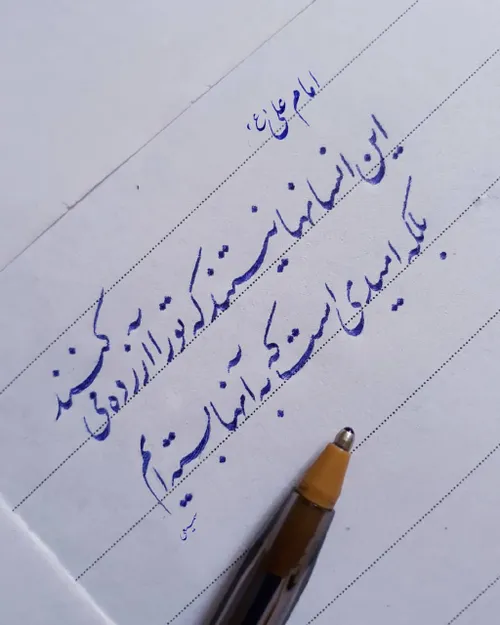 امام علی (ع)
این انسانها نیستند که تو را آزرده می کنند
بلکه امیدی است که به آنها بسته ایم